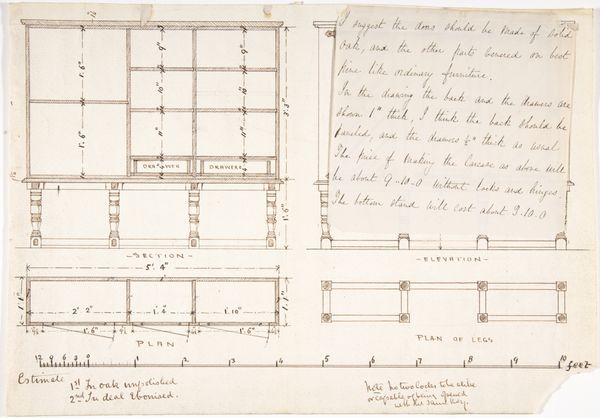 I suggest the doors should be made of solid
Oak, and the other parts Veneered on best
pine like ordinary furniture.
In the drawing the back and the drawers are
shown 1" thick, I think the back should be
panelled, and the drawers ½" thick as usual
The price of making the Carcase as above will
be about 9-10-0 without locks and hinges.
The bottom stand will cost about 3.10.0
1'.6"
1'.6"
9"
10"
9"
9"
10"
11"
3'.3"
DRAWER
DRAWERS
1'.6"
-SECTION-
-ELEVATION-
5'. 4"
1'.1"
2' 2"
1'. 4"
1'.10"
1'.1"
1'.6"
1'.6"
PLAN
PLAN OF LEGS
12 9 6 3 0 1 2 3 4 5 6 7 8 9 10 feet
Estimate 1st In oak unpolished
2nd In deal ebonised.
Note no two locks to be alike
or capable of being opened
with the same key.